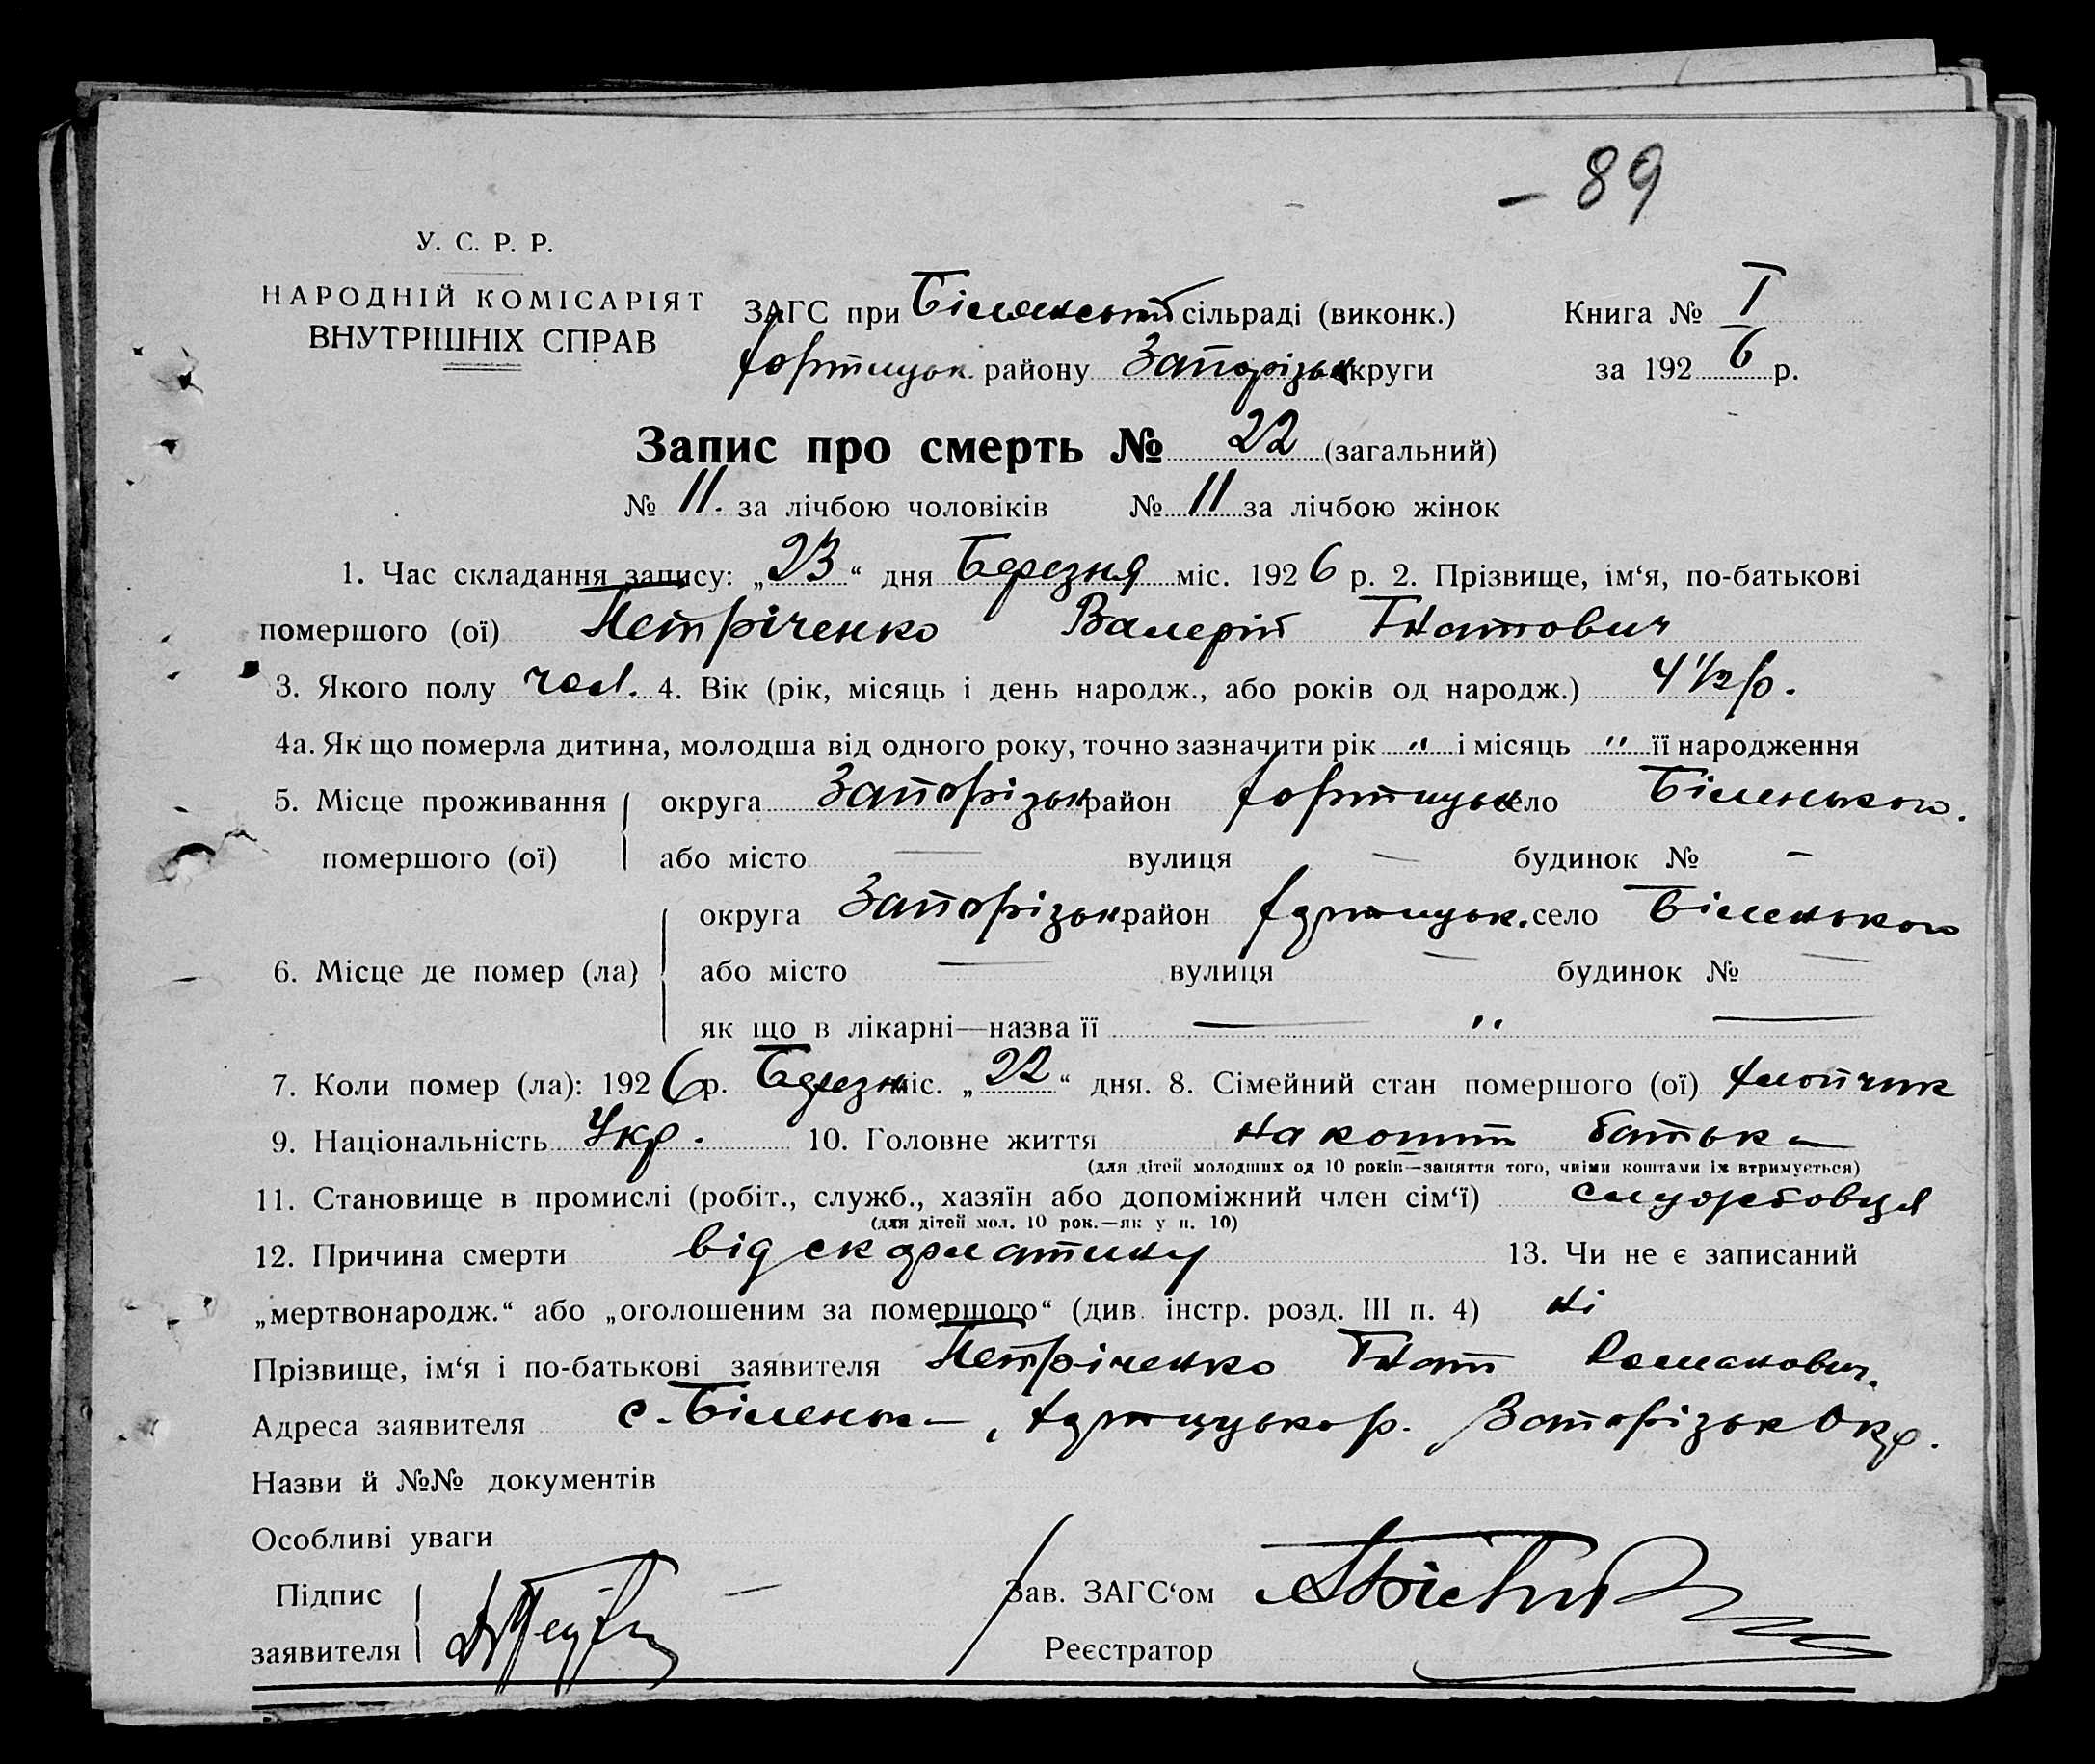 - 89
У. С. Р. Р.
НАРОДНІЙ КОМІСАРІЯТ
ВНУТРІШНІХ СПРАВ
ЗАГС при Біленській сільраді (виконк.) Книга № I
Хортицьк. району Запорізьк округи за 1926 р.
Запис про смерть № 22 (загальний)
№ 11. за лічбою чоловіків № 11 за лічбою жінок
1. Час складання запису: „23“ дня Березня міс. 1926 р. 2. Прізвище, ім‘я, по-батькові
помершого (ої) Петріченко Валерій Гнатович
3. Якого полу чол. 4. Вік (рік, місяць і день народж., або років од народж.) 4 1/2 р.
4а. Як що померла дитина, молодша від одного року, точно зазначити рік " і місяць " її народження
5. Місце проживання округа Запорізьк район Хортицьк село Біленького.
помершого (ої) або місто — вулиця — будинок № —
округа Запорізьк район Хортицьк. село Біленького
6. Місце де помер (ла) або місто — вулиця — будинок № —
як що в лікарні—назва її — " —
7. Коли помер (ла): 1926 р. Березн міс. „22“ дня. 8. Сімейний стан помершого (ої) хлопчик
9. Національність Укр. 10. Головне життя на кошті батька
(для дітей молодших од 10 років—заняття того, чиїми коштами їх втримується)
11. Становище в промислі (робіт., служб., хазяїн або допоміжний член сім‘ї) службовця
(для дітей мол. 10 рок.—як у п. 10)
12. Причина смерти від скарлатини 13. Чи не є записаний
„мертвонародж.“ або „оголошеним за помершого“ (див. інстр. розд. III п. 4) ні
Прізвище, ім‘я і по-батькові заявителя Петріченко Гнат Романович.
Адреса заявителя с. Біленьке, Хортицько р. Запорізьк Окр.
Назви й №№ документів
Особливі уваги
Підпис Зав. ЗАГС‘ом
заявителя Реєстратор